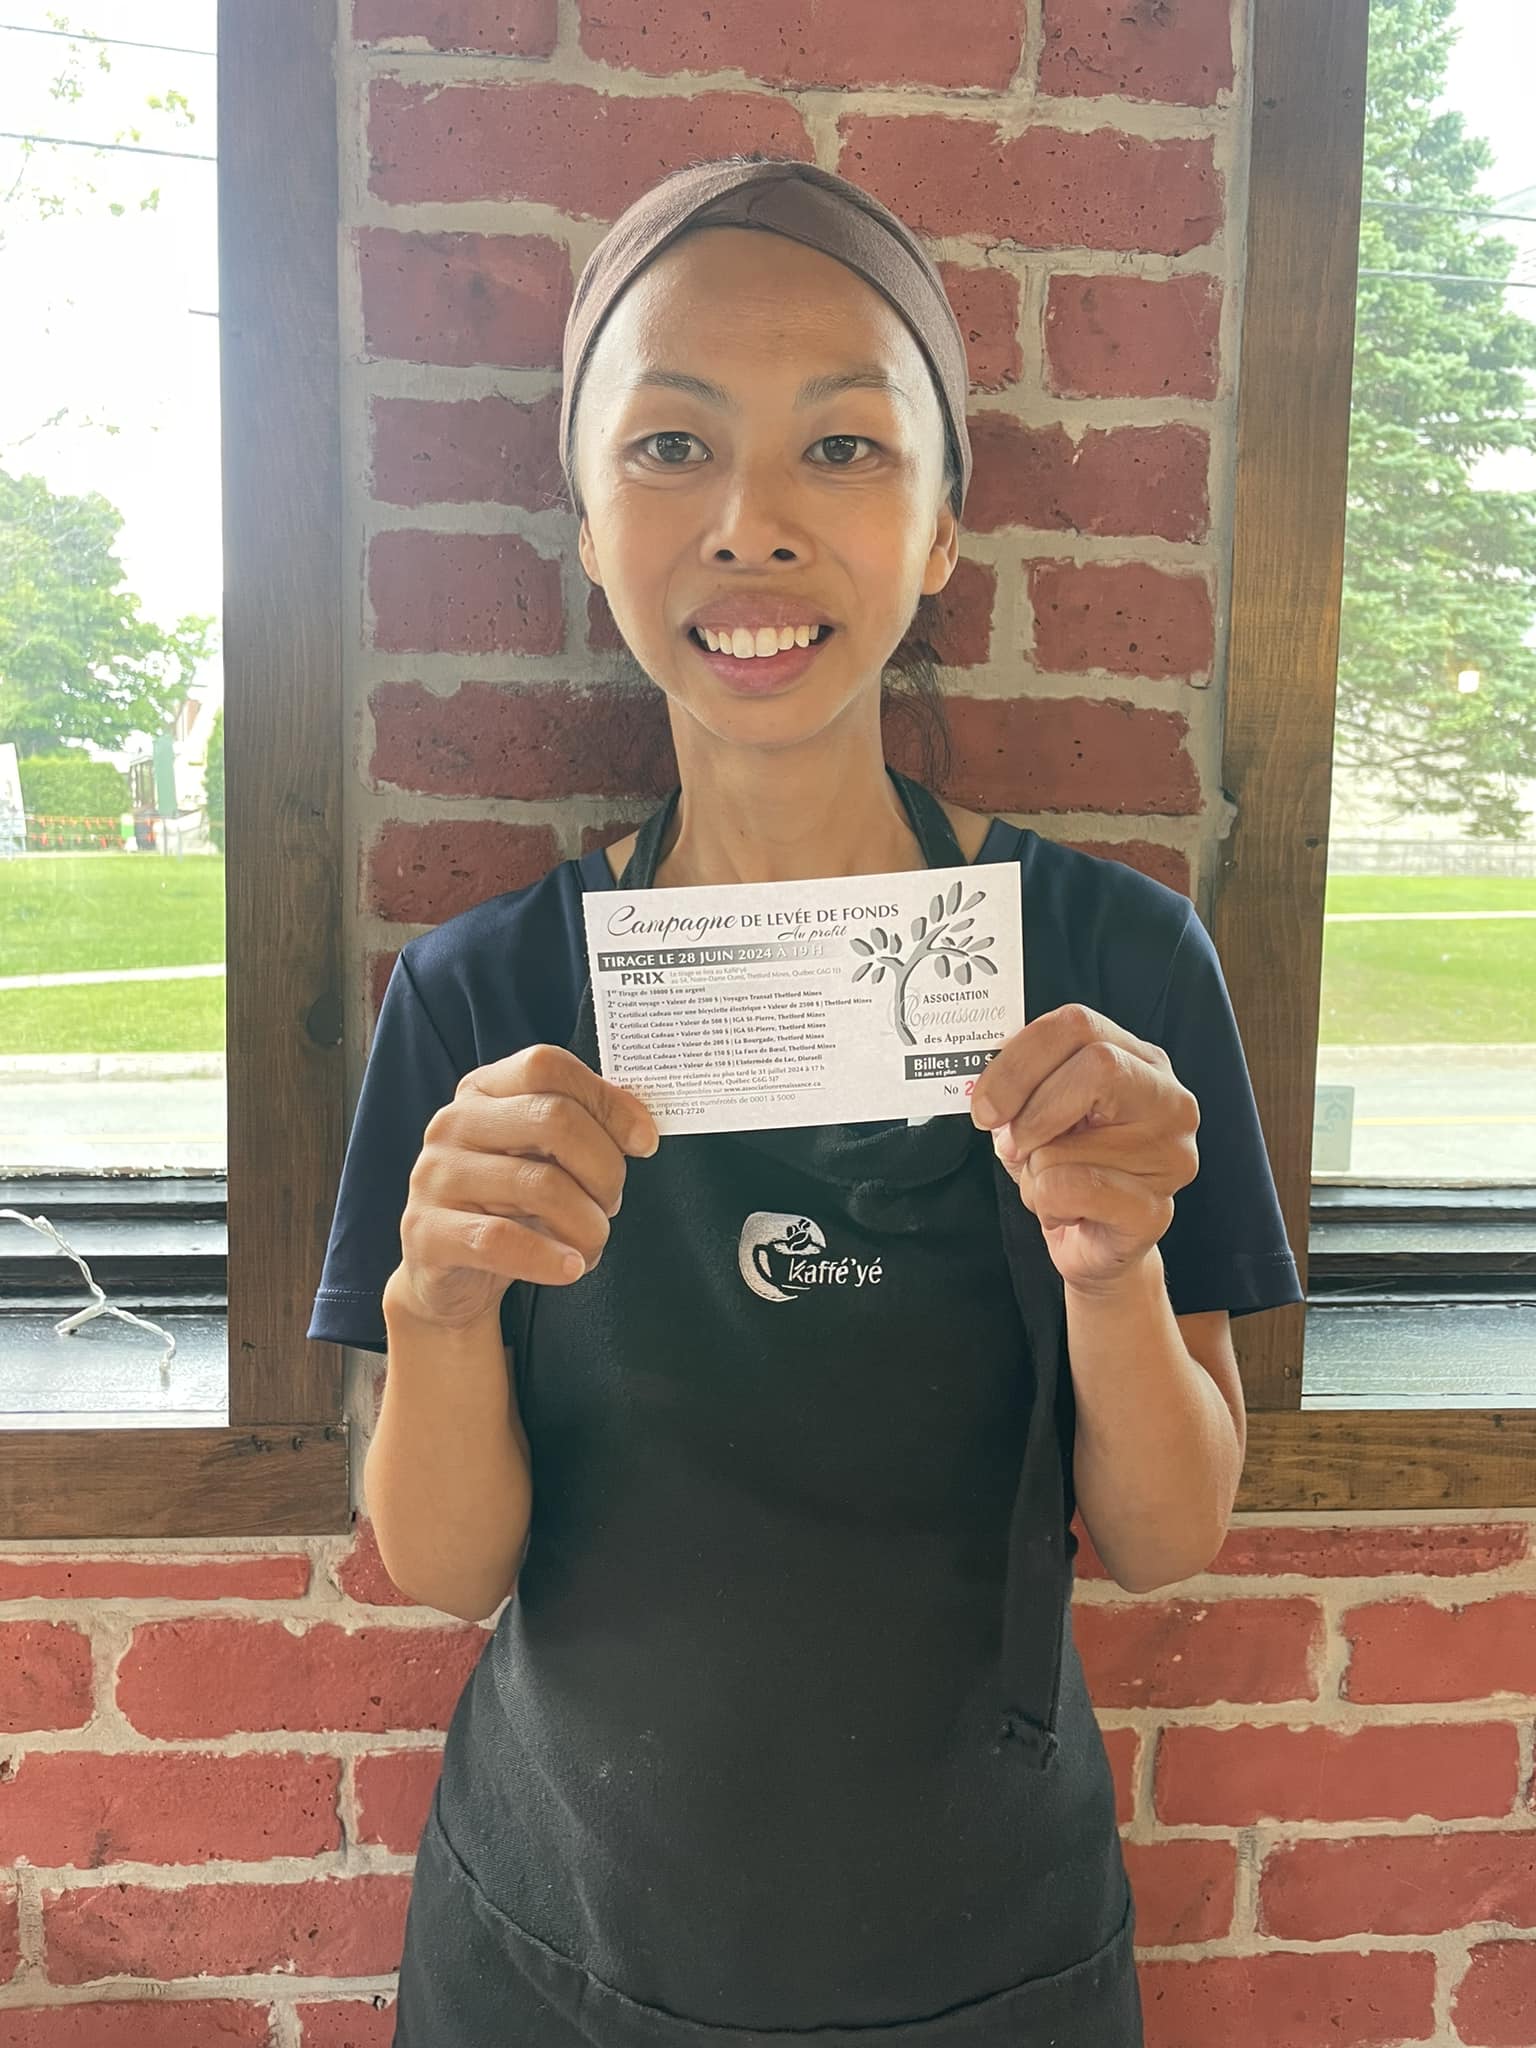 Campagne DE LEVÉE DE FONDS
Au profit
TIRAGE LE 28 JUIN 2024 À 19 H
PRIX Le tirage se fera au Kaffé'yé
au 54, Notre-Dame Ouest, Thetford Mines, Québec G6G 1J3
1er Tirage de 10000 $ en argent
2e Crédit voyage • Valeur de 2500 $ | Voyages Transat Thetford Mines
3e Certificat cadeau sur une bicyclette électrique • Valeur de 2500 $ | Thetford Mines
4e Certificat Cadeau • Valeur de 500 $ | IGA St-Pierre, Thetford Mines
5e Certificat Cadeau • Valeur de 500 $ | IGA St-Pierre, Thetford Mines
6e Certificat Cadeau • Valeur de 200 $ | La Bourgade, Thetford Mines
7e Certificat Cadeau • Valeur de 150 $ | La Face de Bœuf, Thetford Mines
8e Certificat Cadeau • Valeur de 150 $ | L'intermède du Lac, Disraeli
Les prix doivent être réclamés au plus tard le 31 juillet 2024 à 17 h
9e rue Nord, Thetford Mines, Québec G6G 5J7
et règlements disponibles sur www.associationrenaissance.ca
imprimés et numérotés de 0001 à 5000
RACJ-2720
ASSOCIATION
Renaissance
des Appalaches
Billet : 10 $
18 ans et plus
No 2
Kaffé'yé